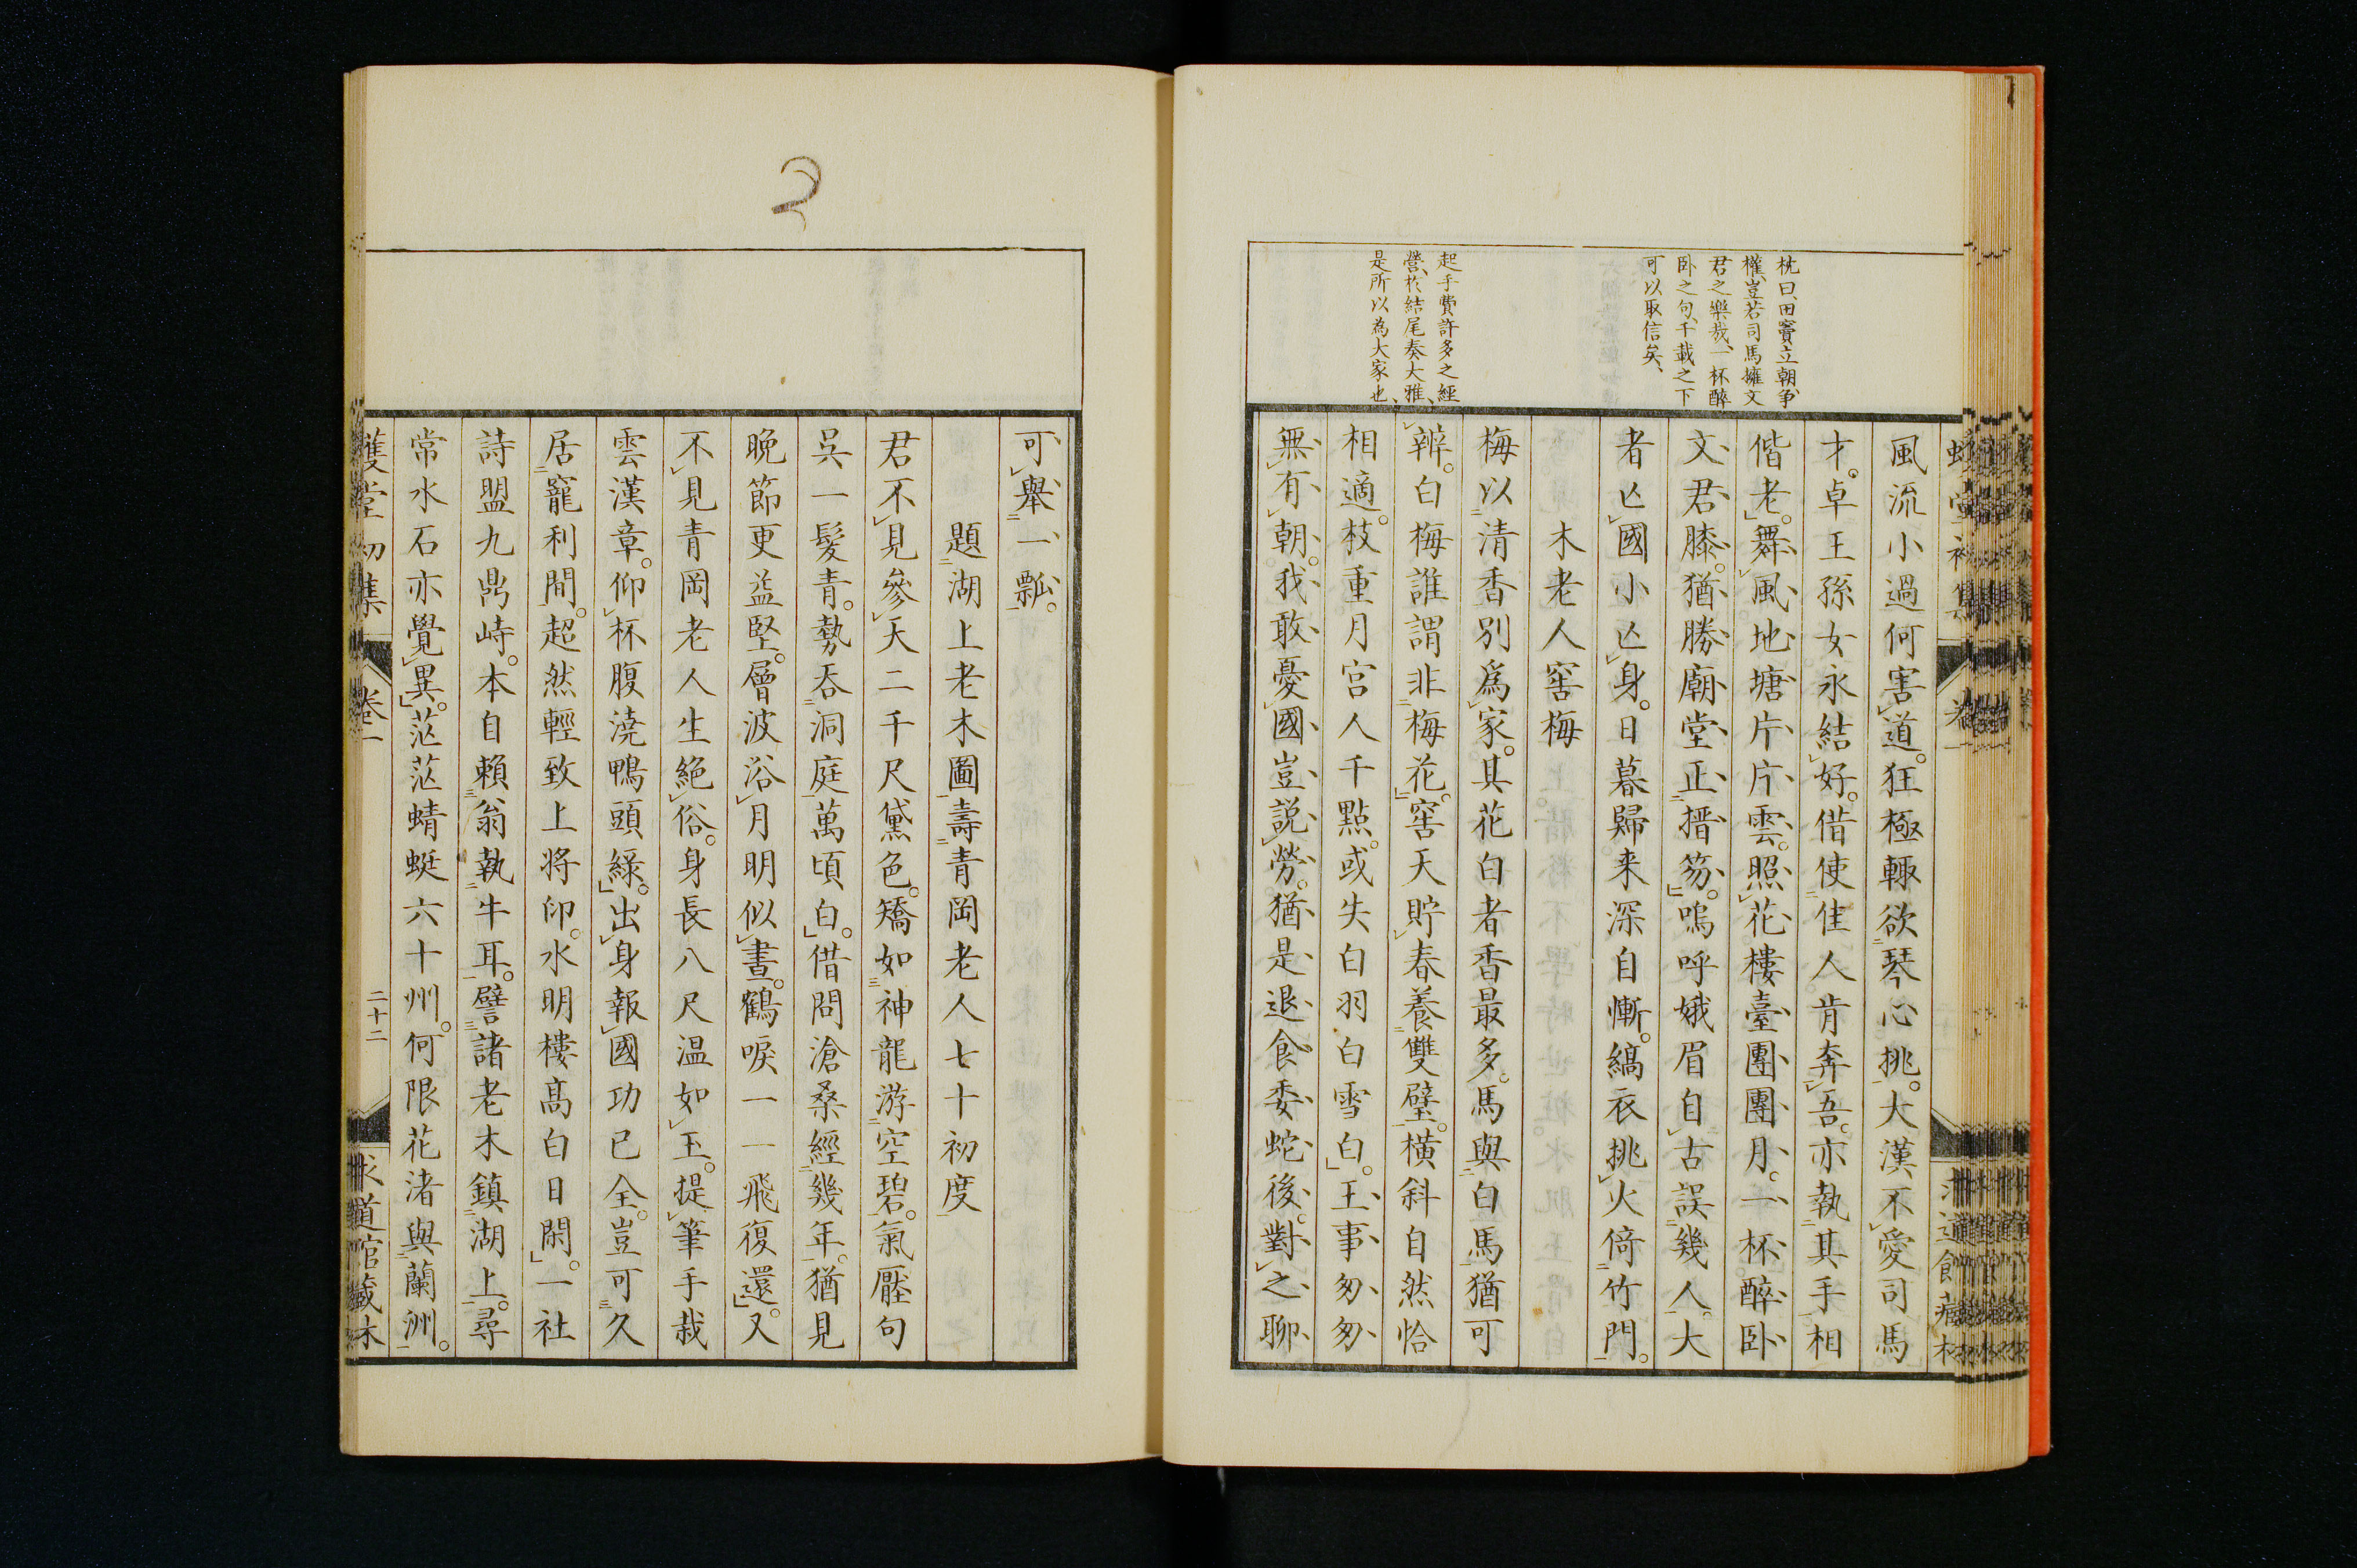 枕曰、田竇立朝、争
權、豈若司馬擁文
君之樂哉、一杯醉
卧之句、千載之下
可以取信矣、
起手費許多之經
營、於結尾奏大雅、
是所以為大家也、
風流小過何害道。狂極輙欲琴心挑。大漢不愛司馬
才。卓王孫女永結好。借使佳人肯奔吾。亦執其手相
偕老。舞風地塘片片雲。照花樓臺團團月。一杯醉卧
文君膝。猶勝廟堂正搢笏。嗚呼娥眉自古誤幾人。大
者亡國小亡身。日暮歸来深自慚。縞衣挑火倚竹門。
木老人窖梅
梅以清香別爲家。其花白者香最多。馬與白馬猶可
辨。白梅誰謂非梅花。窖天貯春養雙璧。横斜自然恰
相適。枝重月宫人千點。或失白羽白雪白。王事匆匆
無有朝。我敢憂國豈説勞。猶是退食委蛇後。對之聊
可舉一瓢。
題湖上老木圖壽青岡老人七十初度
君不見參天二千尺黛色。矯如神龍游空碧。氣壓句
呉一髮青。勢吞洞庭萬頃白。借問滄桑經幾年。猶見
晚節更益堅。層波浴月明似晝。鶴唳一一飛復還。又
不見青岡老人生絶俗。身長八尺温如玉。提筆手裁
雲漢章。仰杯腹澆鴨頭緑。出身報國功已全。豈可久
居寵利間。超然輕致上将印。水明樓髙白日閑。一社
詩盟九鼎峙。本自賴翁執牛耳。譬諸老木鎮湖上。尋
常水石亦覺異。茫茫蜻蜓六十州。何限花渚與蘭洲。
堂初集　卷一　二十二　求道館藏本